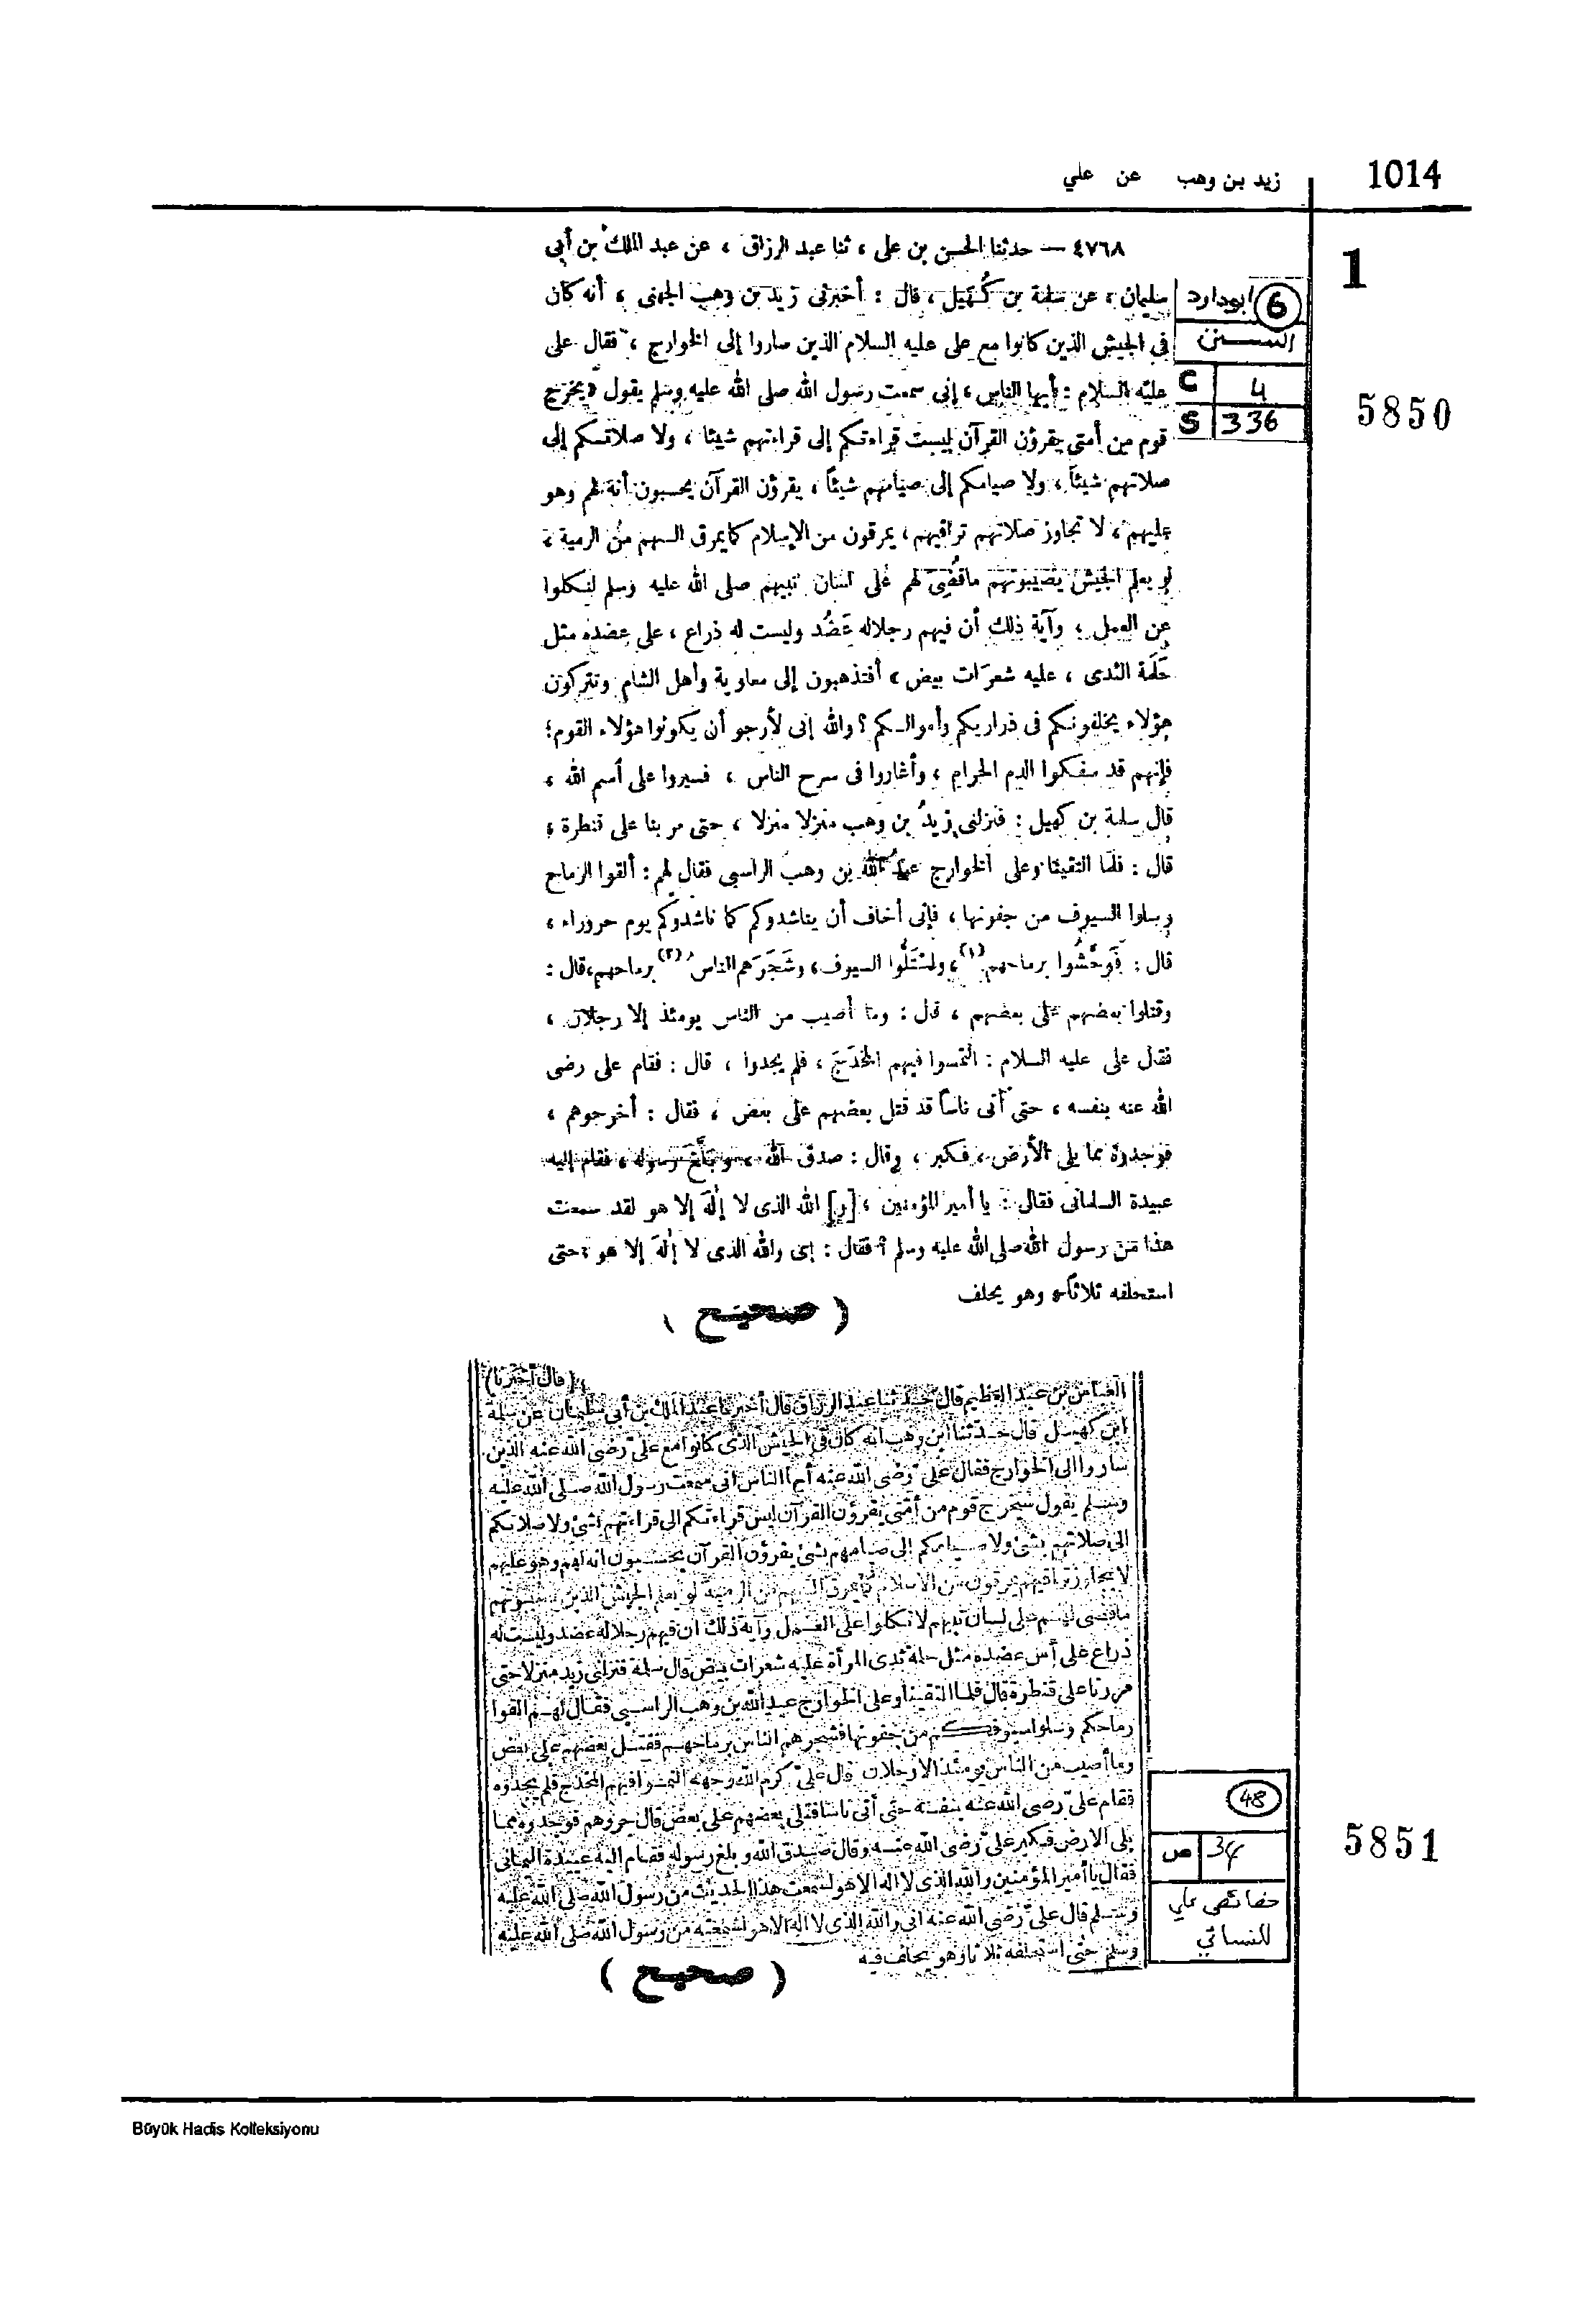 1014
زيد بن وهب عن علي
1
٤٧٦٨ — حدثنا الحسن بن على ، ثنا عبد الرزاق ، عن عبد الملك بن أبى
سليمان ، عن سلمة بن كُهَيل ، قال : أخبرنى زيد بن وهب الجهنى ، أنه كان
6 ابوداود
السنن
فى الجيش الذين كانوا مع على عليه السلام الذين ساروا إلى الخوارج ، فقال على
C 4
عليه السلام : أيها الناس ، إنى سمعت رسول الله صلى الله عليه وسلم يقول « يخرج
S 336
5850
قوم من أمتى يقرؤن القرآن ليست قراءتكم إلى قراءتهم شيئا ، ولا صلاتكم إلى
صلاتهم شيئاً ، ولا صيامكم إلى صيامهم شيئاً ، يقرؤن القرآن يحسبون أنه لهم وهو
عليهم ، لا تجاوز صلاتهم تراقيهم ، يمرقون من الإسلام كما يمرق السهم من الرمية ،
لو يعلم الجيش يصيبونهم ماقُضِىَ لهم على لسان نبيهم صلى الله عليه وسلم لنكلوا
عن العمل ، وآية ذلك أن فيهم رجلا له عَضُد وليست له ذراع ، على عضده مثل
حَلَمة الثدى ، عليه شعرَات بيض » أفتذهبون إلى معاوية وأهل الشام وتتركون
هؤلاء يخلفونكم فى ذراريكم وأموالكم ؟ والله إنى لأرجو أن يكونوا هؤلاء القوم ؛
فإنهم قد سفكوا الدم الحرام ، وأغاروا فى سرح الناس ، فسيروا على أسم الله ،
قال سلمة بن كهيل : فنزلنى زيدُ بن وهب منزلا منزلا ، حتى مر بنا على قنطرة ،
قال : فلما التقينا وعلى الخوارج عبد الله بن وهب الراسبى فقال لهم : ألقوا الرماح
وسلوا السيوف من جفونها ، فإنى أخاف أن يناشدوكم كما ناشدوكم يوم حروراء ،
قال : فَوَحَّشُوا برماحهم (١) ، واسْتَلُّوا السيوف ، وشَجَرَهم الناس (٢) برماحهم ، قال :
وقتلوا بعضهم على بعضهم ، قال : وما أصيب من الناس يومئذ إلا رجلان ،
فقال على عليه السلام : التمسوا فيهم المخْدَجَ ، فلم يجدوا ، قال : فقام على رضى
الله عنه بنفسه ، حتى أتى ناساً قد قتل بعضهم على بعض ، فقال : أخرجوهم ،
فوجدوة مما يلى الأرض ، فكبر ، وقال : صدق الله ، وبَلَّغ رسوله ، فقام إليه
عبيدة السلمانى فقال : يا أمير المؤمنين ، [و] الله الذى لا إلٰه إلا هو لقد سمعت
هذا من رسول الله صلى الله عليه وسلم ؟ فقال : إى والله الذى لا إلٰه إلا هو ، حتى
استحلفه ثلاثاً ، وهو يحلف
( صحيح )
(قال أخبرنا)
العباس بن عبد العظيم قال حدثنا عبد الرزاق قال أخبرنا عبد الملك بن أبي سليمان عن سلمة
ابن كهيل قال حدثنا ابن وهب أنه كان في الجيش الذي كانوا مع علي رضى الله عنه الذين
ساروا الى الخوارج فقال على رضى الله عنه أيها الناس انى سمعت رسول الله صلى الله عليه
وسلم يقول سيخرج قوم من أمتى يقرؤن القرآن ليس قراءتكم الى قراءتهم بشئ ولا صلاتكم
الى صلاتهم بشئ ولا صيامكم إلى صيامهم بشئ يقرؤن القرآن يحسبون انه لهم وهو عليهم
لا يجاوز تراقيهم يمرقون من الاسلام كما يمرق السهم من الرمية لو يعلم الجيش الذين يصيبونهم
ماقضى لهم على لسان نبيهم لاتكلوا على العمل وآية ذلك ان فيهم رجلا له عضد وليست له
ذراع على أس عضده مثل حلمة ثدى المرأة عليه شعرات بيض قال سلمة فنزلنى زيد منزلا حتى
مررنا على قنطرة قال فلما التقينا وعلى الخوارج عبد الله بن وهب الراسبى فقال لهم القوا
رماحكم وسلوا سيوفكم من جفونها فشجرهم الناس برماحهم فقتل بعضهم على بعض
وما أصيب من الناس يومئذ الا رجلان قال على كرم الله وجهه التمسوا فيهم المخدج فلم يجدوه
48
فقام على رضى الله عنه بنفسه حتى أتى ناسا قتلى بعضهم على بعض قال جروهم فوجدوه مما
يلى الارض فكبر على رضى الله عنه وقال صدق الله وبلغ رسوله فقام اليه عبيدة السلمانى
ص 34
5851
فقال يا أمير المؤمنين والله الذى لا اله الا هو لسمعت هذا الحديث من رسول الله صلى الله عليه
خصائص علي
وسلم قال على رضى الله عنه اى والله الذى لا اله الا هو لسمعته من رسول الله صلى الله عليه
للنسائي
وسلم حتى استحلفه ثلاثا وهو يحلف فيه
( صحيح )
Büyük Hadis Kolleksiyonu